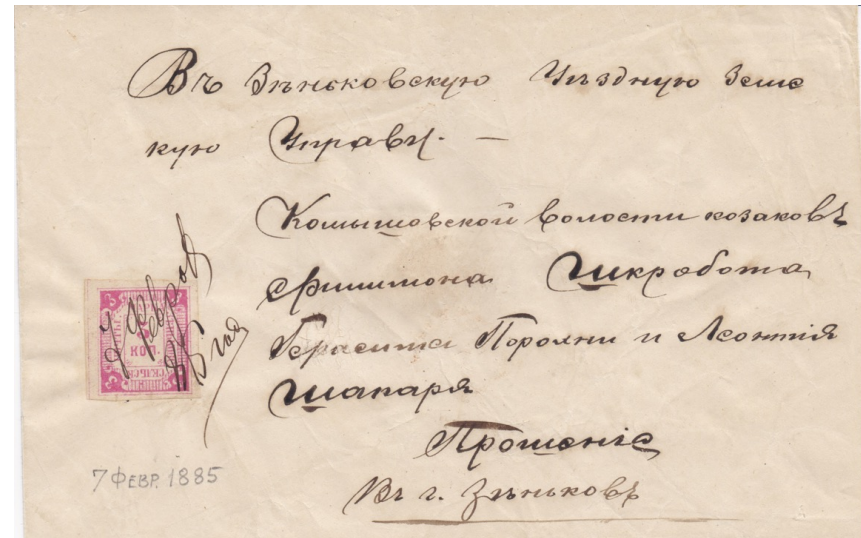 Въ Зѣньковскую Уѣздную Земс
кую Управу. —
Комышовской волости козаковъ
Филимона Шкробота
Герасима Порохни и Леонтія
Шапаря
Прошеніе
Въ г. Зѣньковъ
7 Февраля
85 года
3
КОП.
7 ФЕВР. 1885